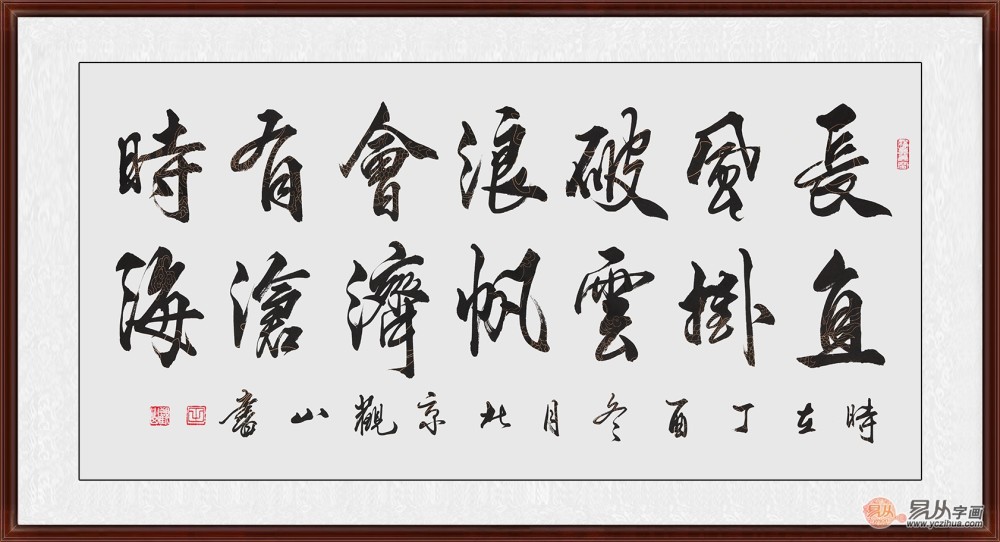 長風破浪會有時
直掛雲帆濟滄海
時在丁酉冬月北京觀山書
易从
易从字画
www.yczihua.com